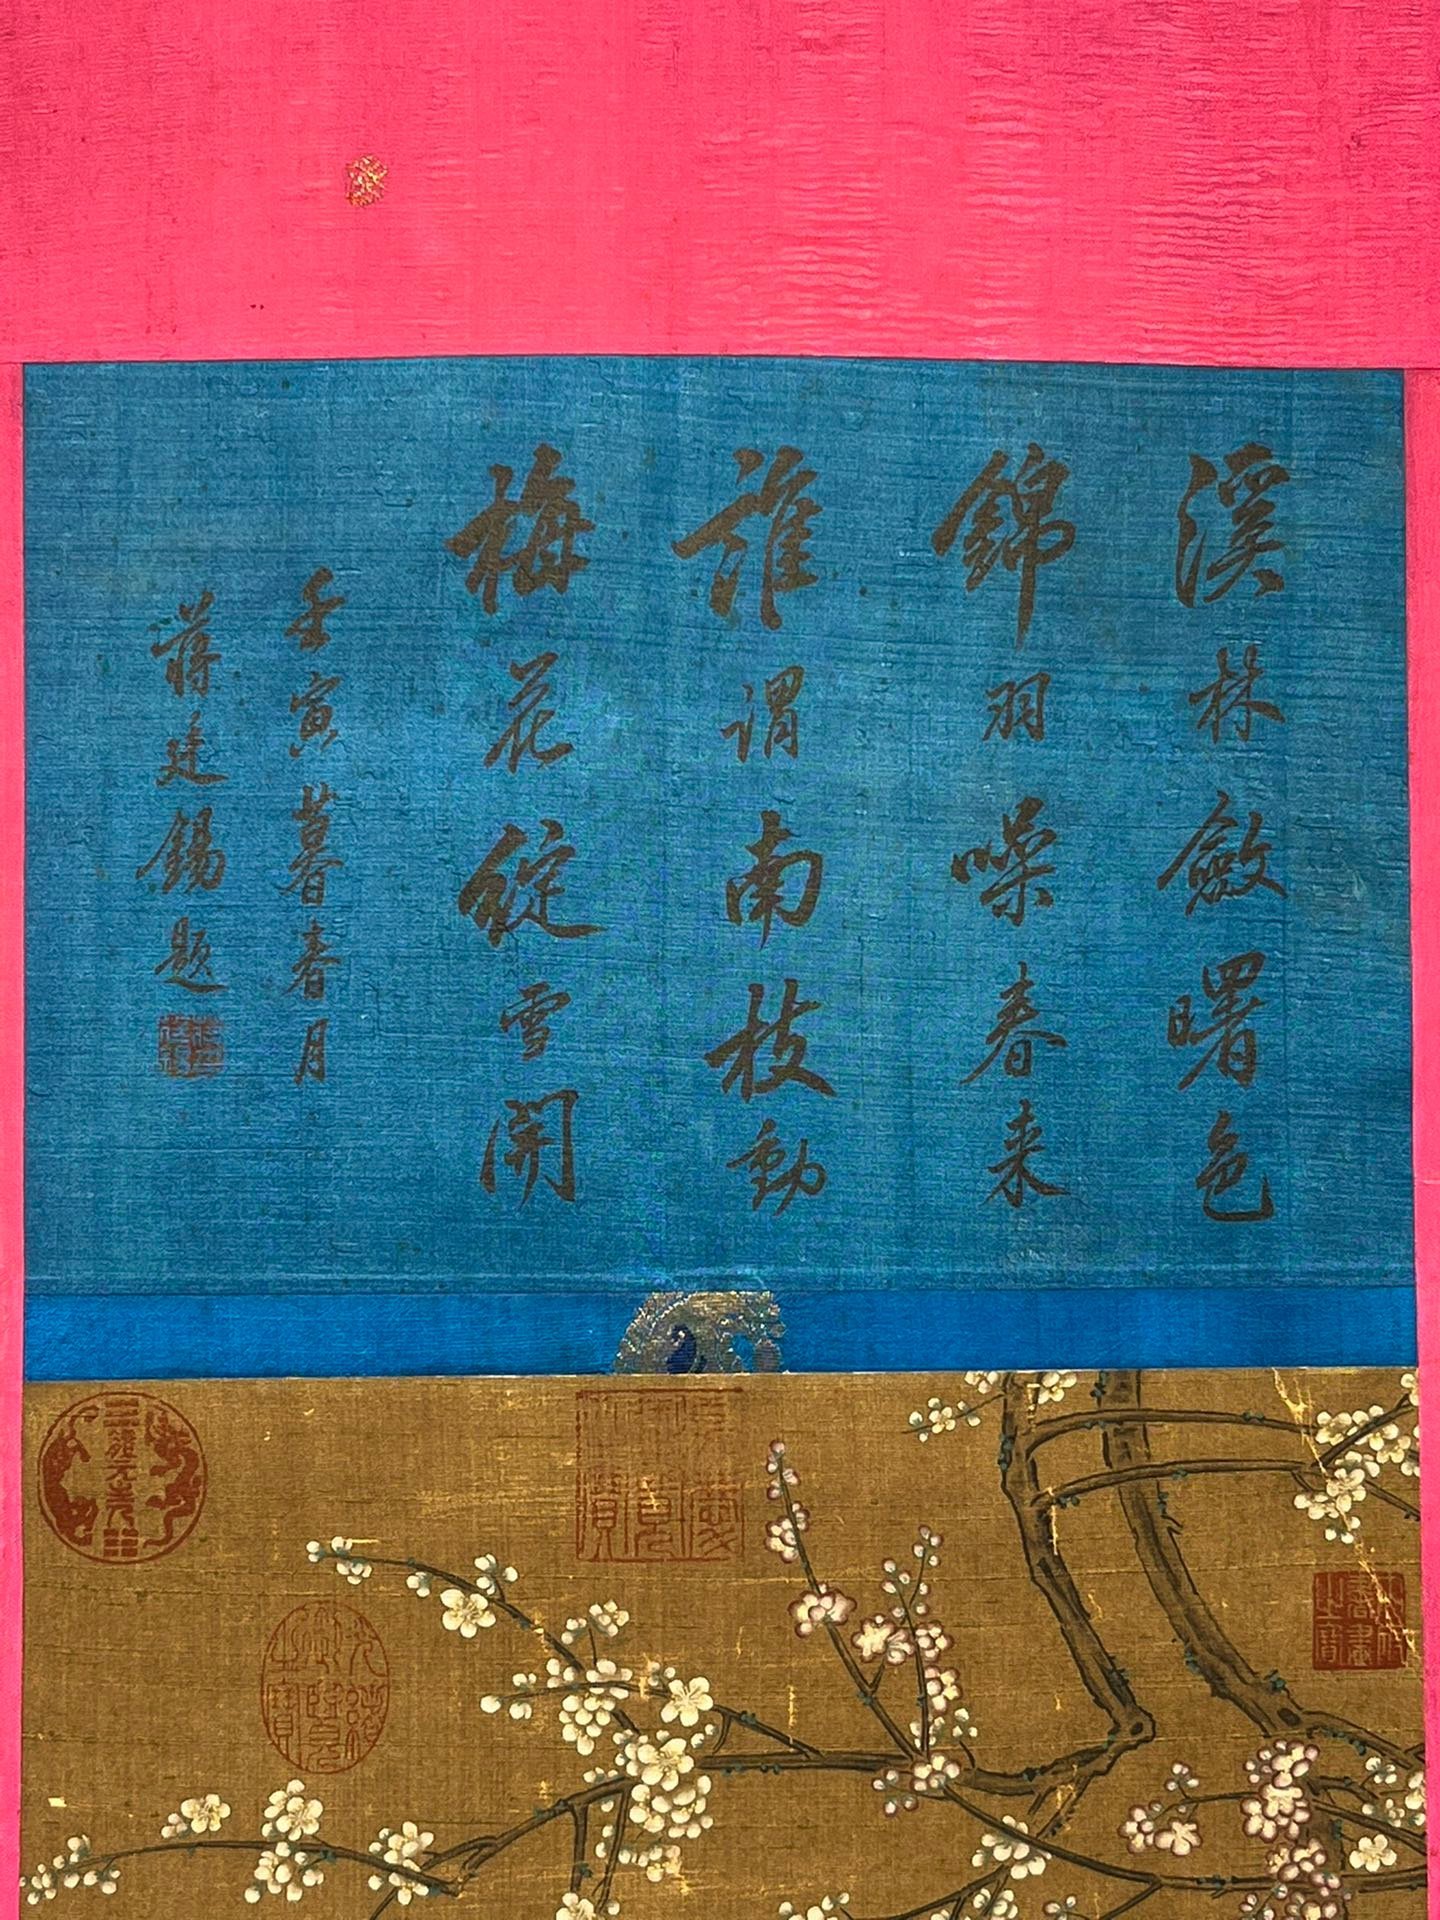 溪林斂曙色
錦羽噪春来
誰謂南枝動
梅花綻雪開
壬寅暮春月
蔣廷錫題
光緒御覽之寶